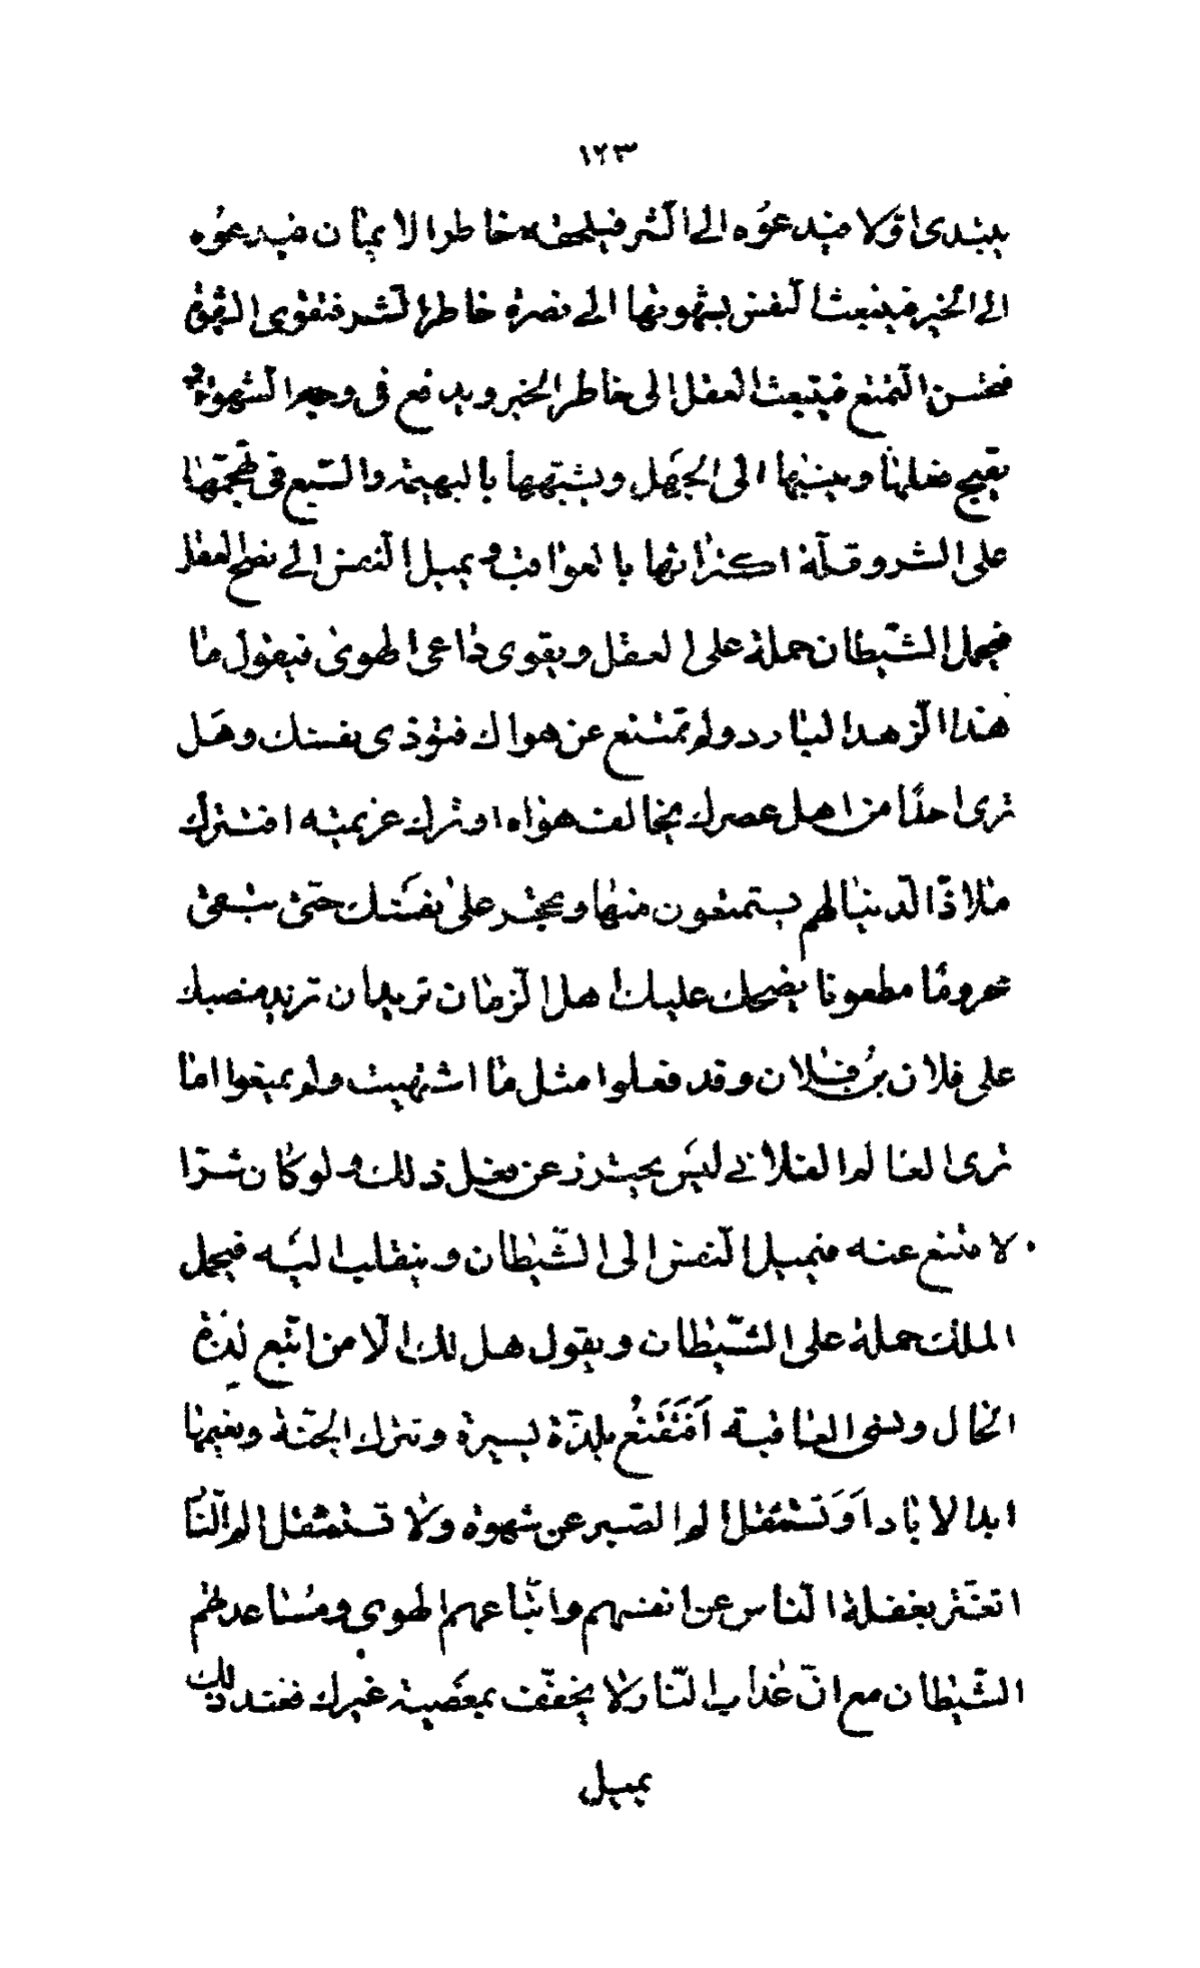 ١٢٣
يبتدى اوّلا فيدعوُه الى الشر فيلحقه خاطر الايمان فيدعوُه
الى الخير فينبعث النفس بشهوتها الى نصرة خاطر الشر فتقوى الشهوة
فحسن التمتع فينبعث العقل الى خاطر الخير ويدفع فى وجه الشهوة و
يقبح فعلها وينسبها الى الجهل ويشبهها بالبهيمة والسبع فى تهجمها
على الشر وقلّة اكتراثها بالعواقب ويميل النفس الى نصح العقل
فيحمل الشيطان حملة على العقل ويقوى داعى الهوى فيقول ما
هذا الزهد البارد ولم تمتنع عن هواك فتؤذى نفسك وهل
ترى احدًا من اهل عصرك يخالف هواه او ترك عزيمته افتترك
ملاذّ الدنيا لهم يستمتعون منها وتحجر على نفسك حتى تبقى
محرومًا مطعونا يضحك عليك اهل الزمان تريد ان تزيد منصبك
على فلان بن فلان وقد فعلوا مثل ما اشتهيت ولم يمتنعوا اما
ترى العالم الفلانى ليس يحترز عن فعل ذلك ولو كان شرّا
لامتنع عنه فيميل النفس الى الشّيطان وينقلب اليه فيحمل
الملك حملة على الشيطان ويقول هل هلك الّا من اتّبع لذة
الحال ونسى العاقبة اَفَتَقْنَعُ بلذّة يسيرة وتترك الجنّة ونعيمها
ابد الاباد اَوَتَستثقل الم الصبر عن شهوة ولا تستثقل الم النّار
اتغترّ بغفلة الناس عن انفسهم واتّباعهم الهوى ومساعدتهم
الشّيطان مع انّ عذاب النّار لا يخفّف بمعصية غيرك فعند ذلك
يميل